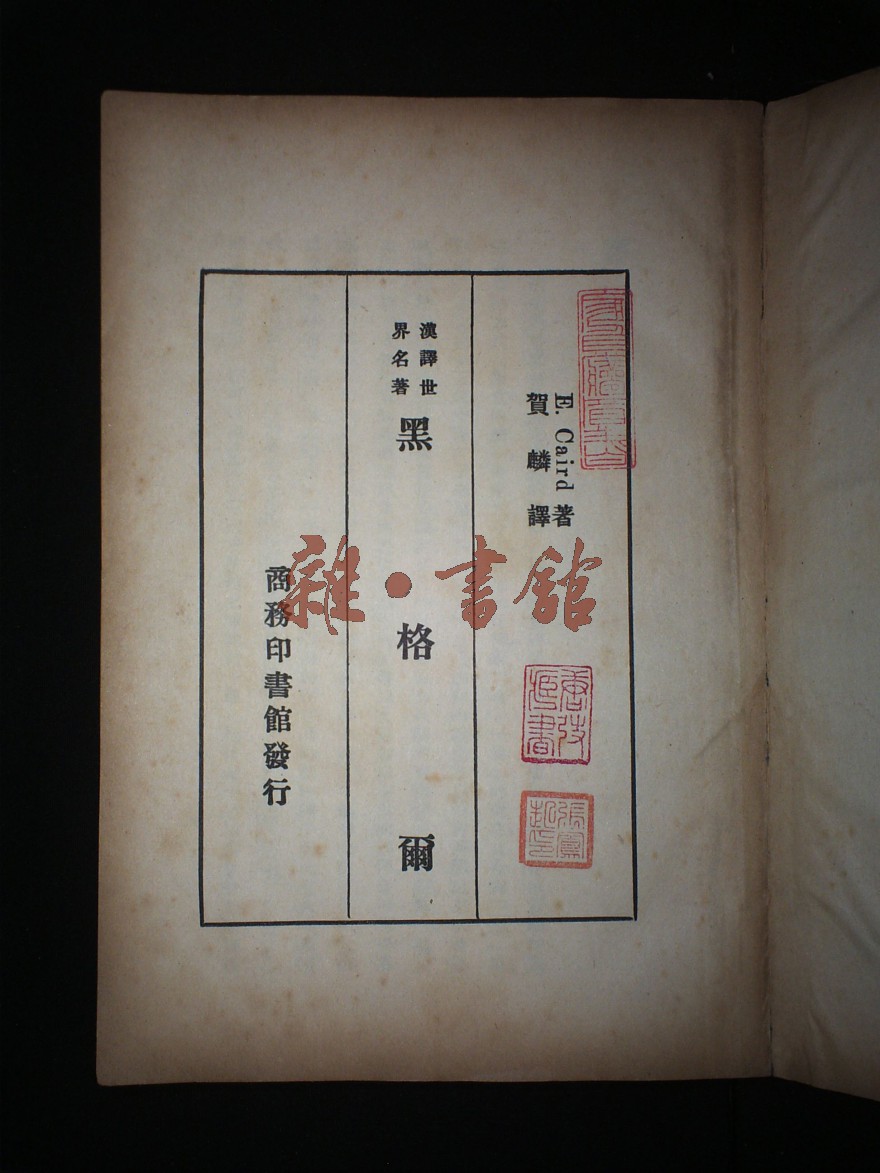 E. Caird 著
賀麟譯
漢譯世
界名著
黑格爾
商務印書館發行
雜·書館
張鳳起印